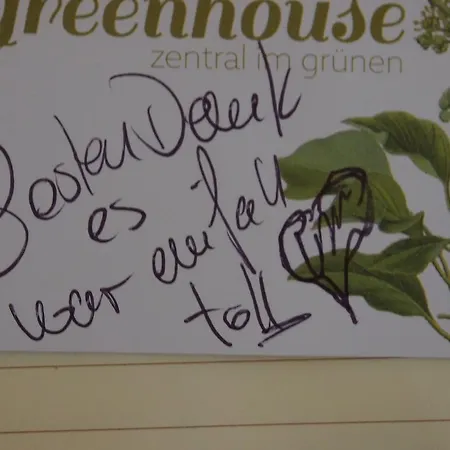 greenhouse
zentral im grünen
Besten Dank
es
war einfach
toll